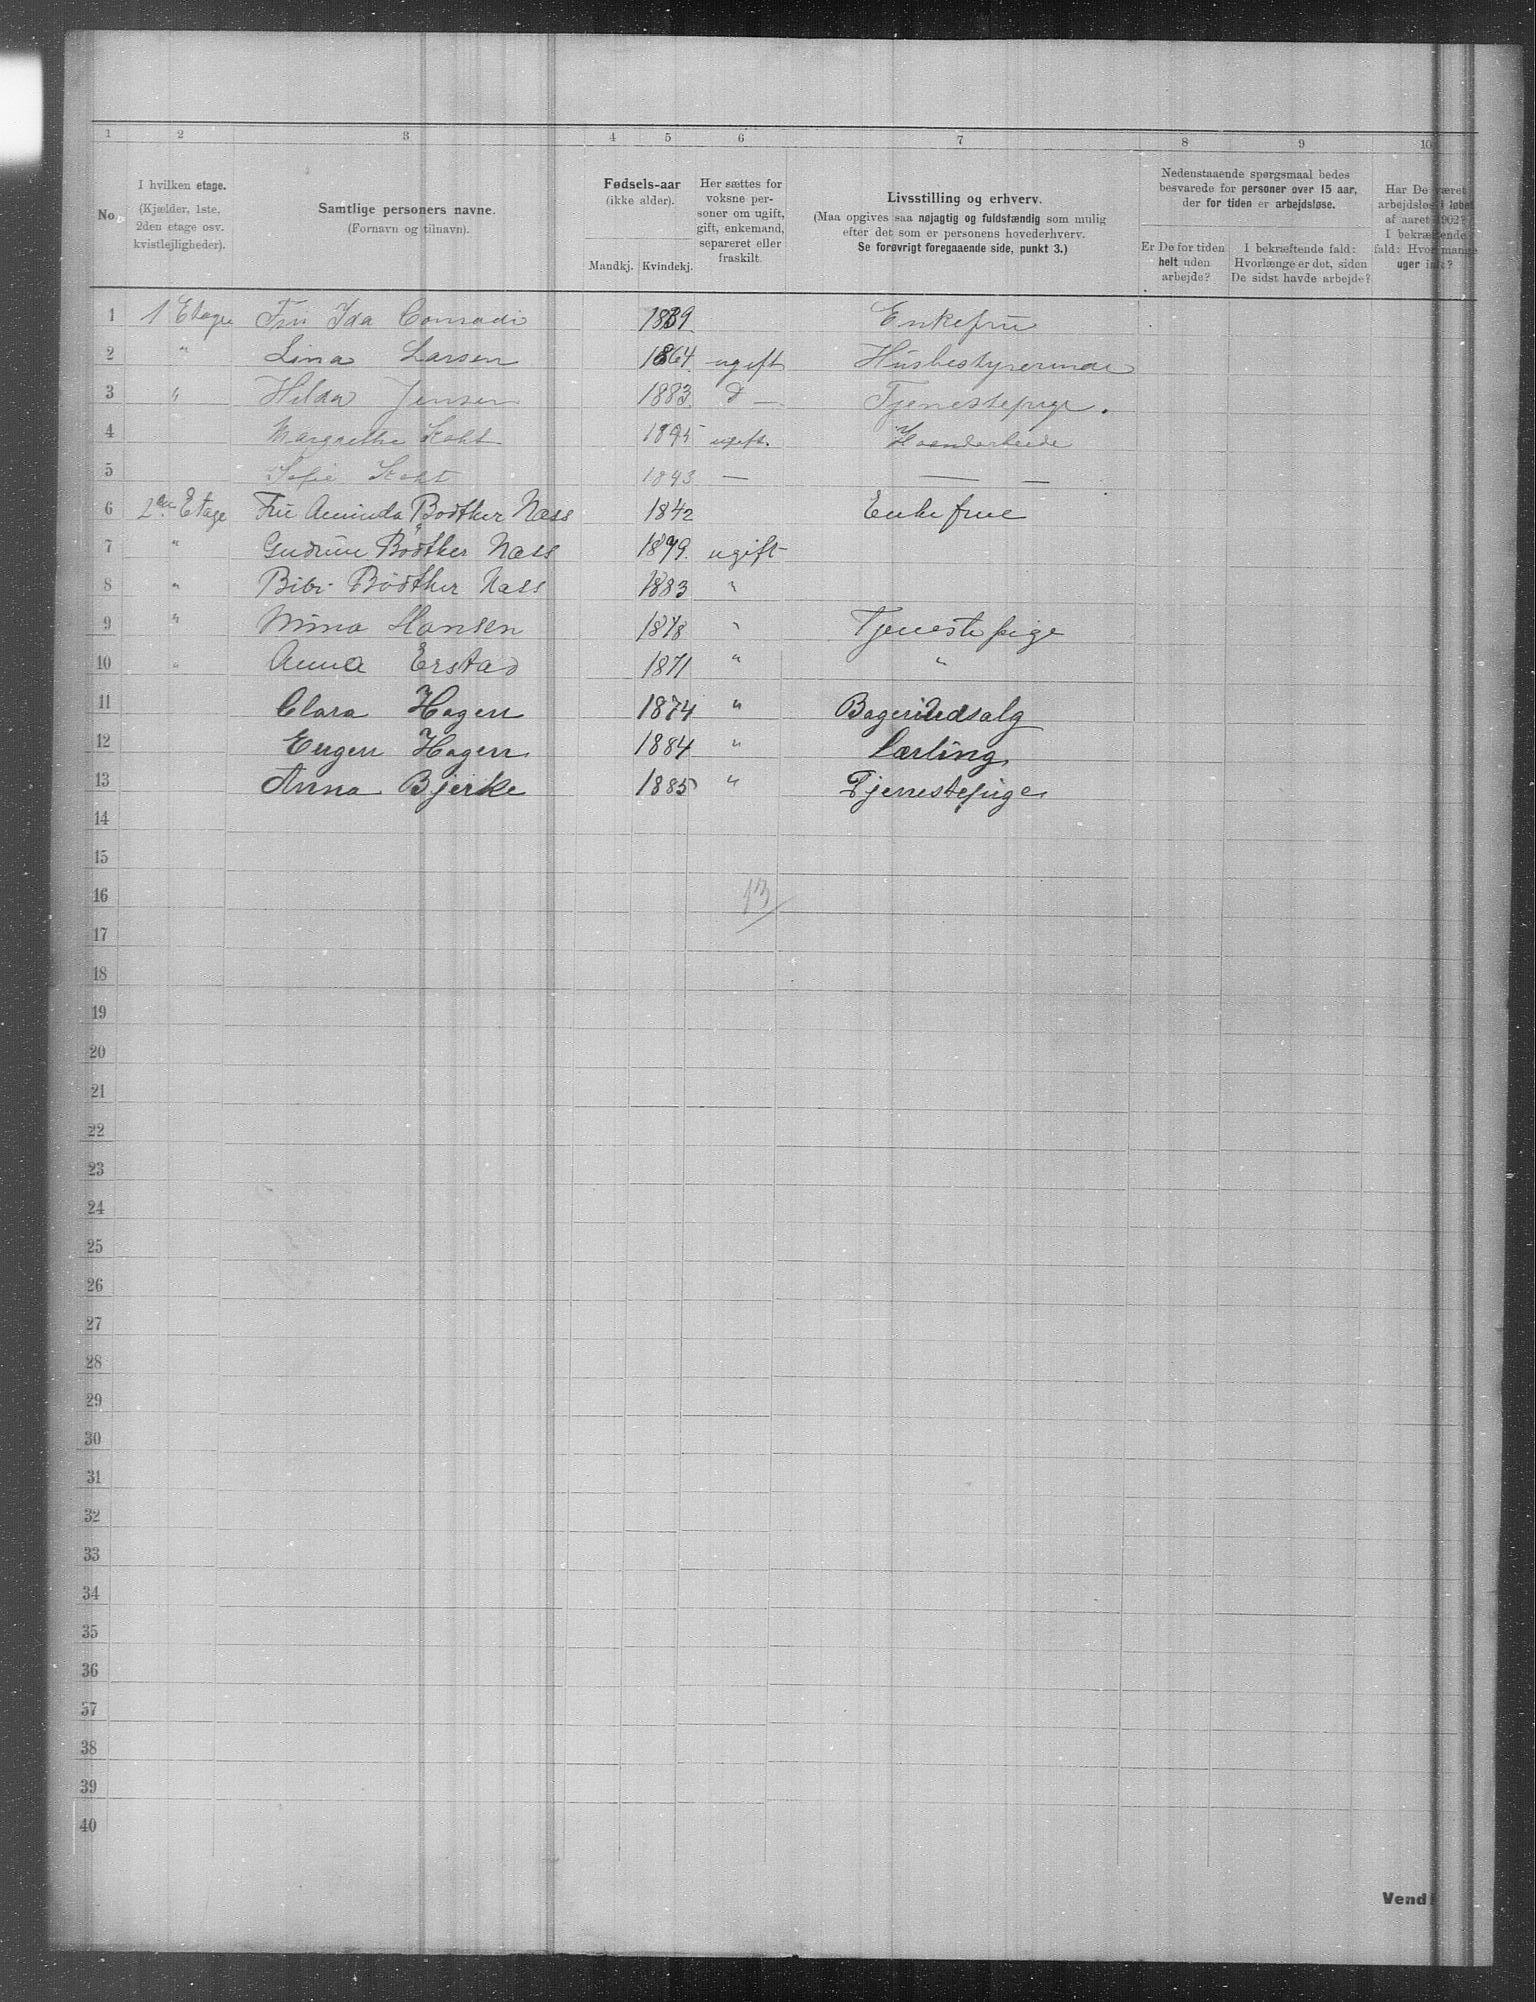 1 2 3 4 5 6 7 8 9 10
No.
I hvilken etage.
(Kjælder, 1ste,
2den etage osv.
kvistlejligheder).
Samtlige personers navne.
(Fornavn og tilnavn).
Fødsels-aar
(ikke alder).
Mandkj. Kvindekj.
Her sættes for
voksne per-
soner om ugift,
gift, enkemand,
separeret eller
fraskilt.
Livsstilling og erhverv.
(Maa opgives saa nøjagtig og fuldstændig som mulig
efter det som er personens hovederhverv.
Se forøvrigt foregaaende side, punkt 3.)
Nedenstaaende spørgsmaal bedes
besvarede for personer over 15 aar,
der for tiden er arbejdsløse.
Er De for tiden
helt uden
arbejde?
I bekræftende fald:
Hvorlænge er det, siden
De sidst havde arbejde?
Har De været
arbejdsløs i løbet
af aaret 1902?
I bekræftende
fald: Hvor mange
uger ialt?
1 1 Etage Fru Ida Conradi 1839 Enkefru
2 " Lina Larsen 1864 ugift Husbestyrerinde
3 " Hilda Jensen 1883 d — Tjenestepige.
4 Margrethe Koht 1845 ugift. Haandarbeide
5 Sofie Koht 1843 — — —
6 2den Etage Fru Aminda Bødtker Næss 1842 Enkefrue
7 " Gudrun Bødtker Næss 1879. ugift
8 " Bibi Bødtker Næss 1883 "
9 " Nina Hansen 1878 " Tjenestepige
10 " Anna Erstad 1871 " "
11 Clara Hagen 1874 " Bageriudsalg
12 Eugen Hagen 1884 " Lærling
13 Anna Bjerke 1885 " Tjenestepige
14
15
16 13
17
18
19
20
21
22
23
24
25
26
27
28
29
30
31
32
33
34
35
36
37
38
39
40
Vend!